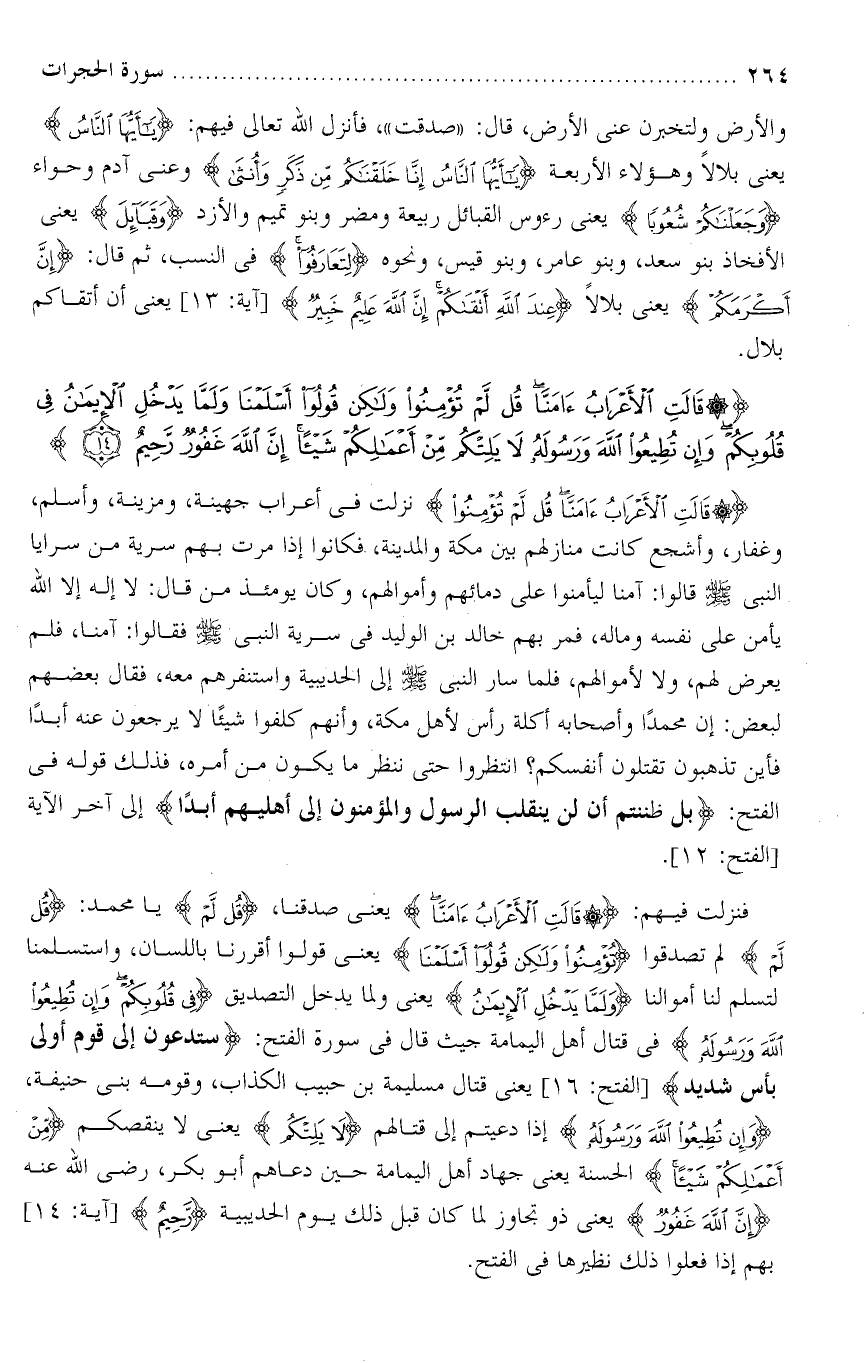 ٢٦٤ ........................................................................ سورة الحجرات
والأرض ولتخبرن عنى الأرض، قال: «صدقت»، فأنزل الله تعالى فيهم: ﴿يَٰٓأَيُّهَا ٱلنَّاسُ﴾
يعنى بلالاً وهؤلاء الأربعة ﴿يَٰٓأَيُّهَا ٱلنَّاسُ إِنَّا خَلَقْنَٰكُم مِّن ذَكَرٍ وَأُنثَىٰ﴾ وعنى آدم وحواء
﴿وَجَعَلْنَٰكُمْ شُعُوبًا﴾ يعنى رءوس القبائل ربيعة ومضر وبنو تميم والأزد ﴿وَقَبَآئِلَ﴾ يعنى
الأفخاذ بنو سعد، وبنو عامر، وبنو قيس، ونحوه ﴿لِتَعَارَفُوٓا۟ۚ﴾ فى النسب، ثم قال: ﴿إِنَّ
أَكْرَمَكُمْ﴾ يعنى بلالاً ﴿عِندَ ٱللَّهِ أَتْقَىٰكُمْۚ إِنَّ ٱللَّهَ عَلِيمٌ خَبِيرٌ﴾ [آية: ١٣] يعنى أن أتقاكم
بلال.
﴿۞قَالَتِ ٱلْأَعْرَابُ ءَامَنَّاۖ قُل لَّمْ تُؤْمِنُوا۟ وَلَٰكِن قُولُوٓا۟ أَسْلَمْنَا وَلَمَّا يَدْخُلِ ٱلْإِيمَٰنُ فِى
قُلُوبِكُمْۖ وَإِن تُطِيعُوا۟ ٱللَّهَ وَرَسُولَهُۥ لَا يَلِتْكُم مِّنْ أَعْمَٰلِكُمْ شَيْـًٔاۚ إِنَّ ٱللَّهَ غَفُورٌ رَّحِيمٌ ١٤﴾
﴿۞قَالَتِ ٱلْأَعْرَابُ ءَامَنَّاۖ قُل لَّمْ تُؤْمِنُوا۟﴾ نزلت فى أعراب جهينة، ومزينة، وأسلم،
وغفار، وأشجع كانت منازلهم بين مكة والمدينة، فكانوا إذا مرت بهم سرية من سرايا
النبى ﷺ قالوا: آمنا ليأمنوا على دمائهم وأموالهم، وكان يومئذ من قال: لا إله إلا الله
يأمن على نفسه وماله، فمر بهم خالد بن الوليد فى سرية النبى ﷺ فقالوا: آمنا، فلم
يعرض لهم، ولا لأموالهم، فلما سار النبى ﷺ إلى الحديبية واستنفرهم معه، فقال بعضهم
لبعض: إن محمدًا وأصحابه أكلة رأس لأهل مكة، وأنهم كلفوا شيئًا لا يرجعون عنه أبدًا
فأين تذهبون تقتلون أنفسكم؟ انتظروا حتى ننظر ما يكون من أمره، فذلك قوله فى
الفتح: ﴿بل ظننتم أن لن ينقلب الرسول والمؤمنون إلى أهليهم أبدًا﴾ إلى آخر الآية
[الفتح: ١٢].
فنزلت فيهم: ﴿۞قَالَتِ ٱلْأَعْرَابُ ءَامَنَّاۖ﴾ يعنى صدقنا، ﴿قُل لَّمْ﴾ يا محمد: ﴿قُل
لَّمْ﴾ لم تصدقوا ﴿تُؤْمِنُوا۟ وَلَٰكِن قُولُوٓا۟ أَسْلَمْنَا﴾ يعنى قولوا أقررنا باللسان، واستسلمنا
لتسلم لنا أموالنا ﴿وَلَمَّا يَدْخُلِ ٱلْإِيمَٰنُ﴾ يعنى ولما يدخل التصديق ﴿فِى قُلُوبِكُمْۖ وَإِن تُطِيعُوا۟
ٱللَّهَ وَرَسُولَهُۥ﴾ فى قتال أهل اليمامة حيث قال فى سورة الفتح: ﴿ستدعون إلى قوم أولى
بأس شديد﴾ [الفتح: ١٦] يعنى قتال مسليمة بن حبيب الكذاب، وقومه بنى حنيفة،
﴿وَإِن تُطِيعُوا۟ ٱللَّهَ وَرَسُولَهُۥ﴾ إذا دعيتم إلى قتالهم ﴿لَا يَلِتْكُم﴾ يعنى لا ينقصكم ﴿مِّنْ
أَعْمَٰلِكُمْ شَيْـًٔاۚ﴾ الحسنة يعنى جهاد أهل اليمامة حين دعاهم أبو بكر، رضى الله عنه
﴿إِنَّ ٱللَّهَ غَفُورٌ﴾ يعنى ذو تجاوز لما كان قبل ذلك يوم الحديبية ﴿رَّحِيمٌ﴾ [آية: ١٤]
بهم إذا فعلوا ذلك نظيرها فى الفتح.